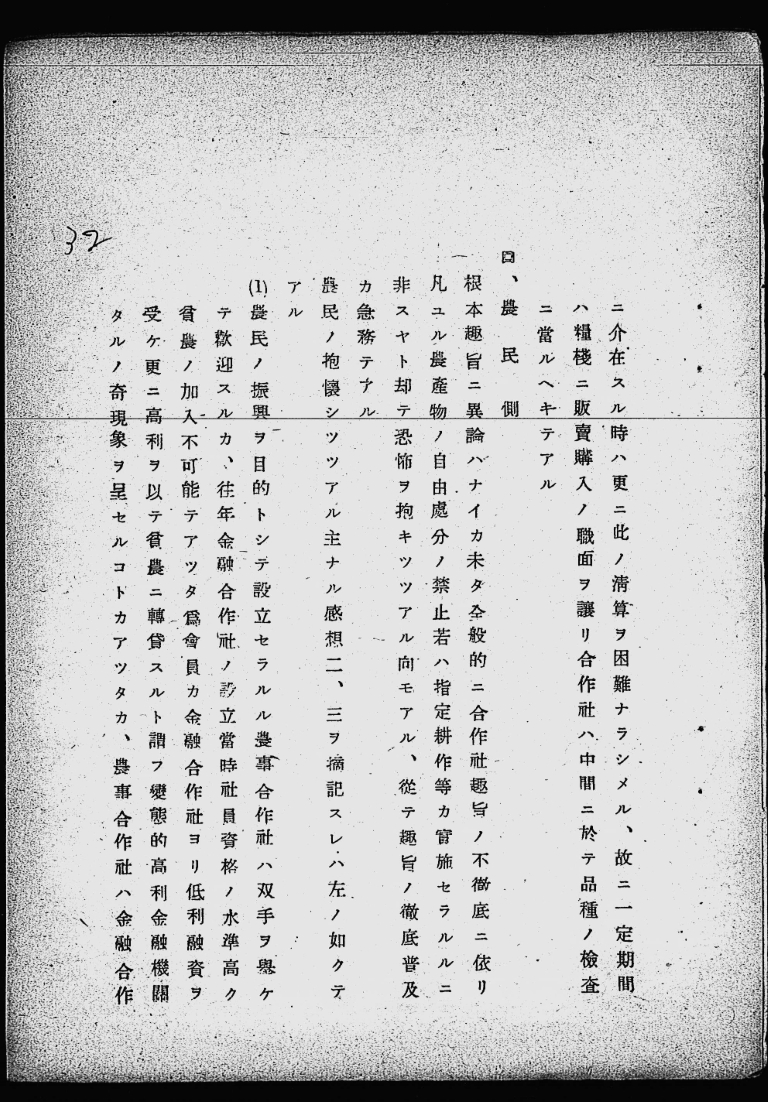 ニ介在スル時ハ更ニ此ノ淸算ヲ困難ナラシメル、故ニ一定期間
ハ糧棧ニ販賣購入ノ職面ヲ讓リ合作社ハ中間ニ於テ品種ノ檢査
ニ當ルヘキテアル
口、農民側
根本趣旨ニ異論ハナイカ未タ全般的ニ合作社趣旨ノ不徹底ニ依リ
凡ユル農產物ノ自由處分ノ禁止若ハ指定耕作等カ官施セラルルニ
非スヤト却テ恐怖ヲ抱キツツアル向モアル、從テ趣旨ノ徹底普及
カ急務テアル
農民ノ抱懷シツツアル主ナル感想二、三ヲ摘記スレハ左ノ如クテ
アル
(1)農民ノ振興ヲ目的トシテ設立セラルル農事合作社ハ双手ヲ擧ケ
テ歡迎スルカ、往年金融合作社ノ設立當時社員資格ノ水準高ク
貧農ノ加入不可能テアツタ爲會員カ金融合作社ヨリ低利融資ヲ
受ケ更ニ高利ヲ以テ貧農ニ轉貸スルト謂フ變態的高利金融機關
タルノ奇現象ヲ呈セルコトカアツタカ、農事合作社ハ金融合作
32